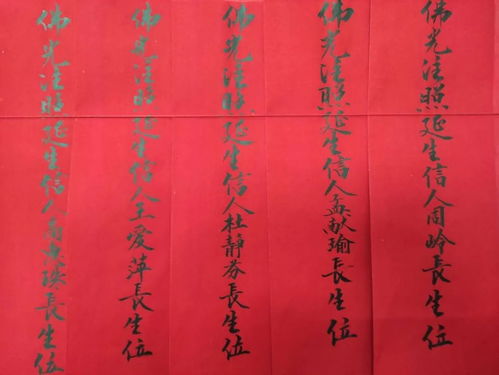 佛光注照延生信人周岭長生位
佛光注照延生信人孟献瑜長生位
佛光注照延生信人杜静芬長生位
佛光注照延生信人王爱萍長生位
佛光注照延生信人高惠珠長生位